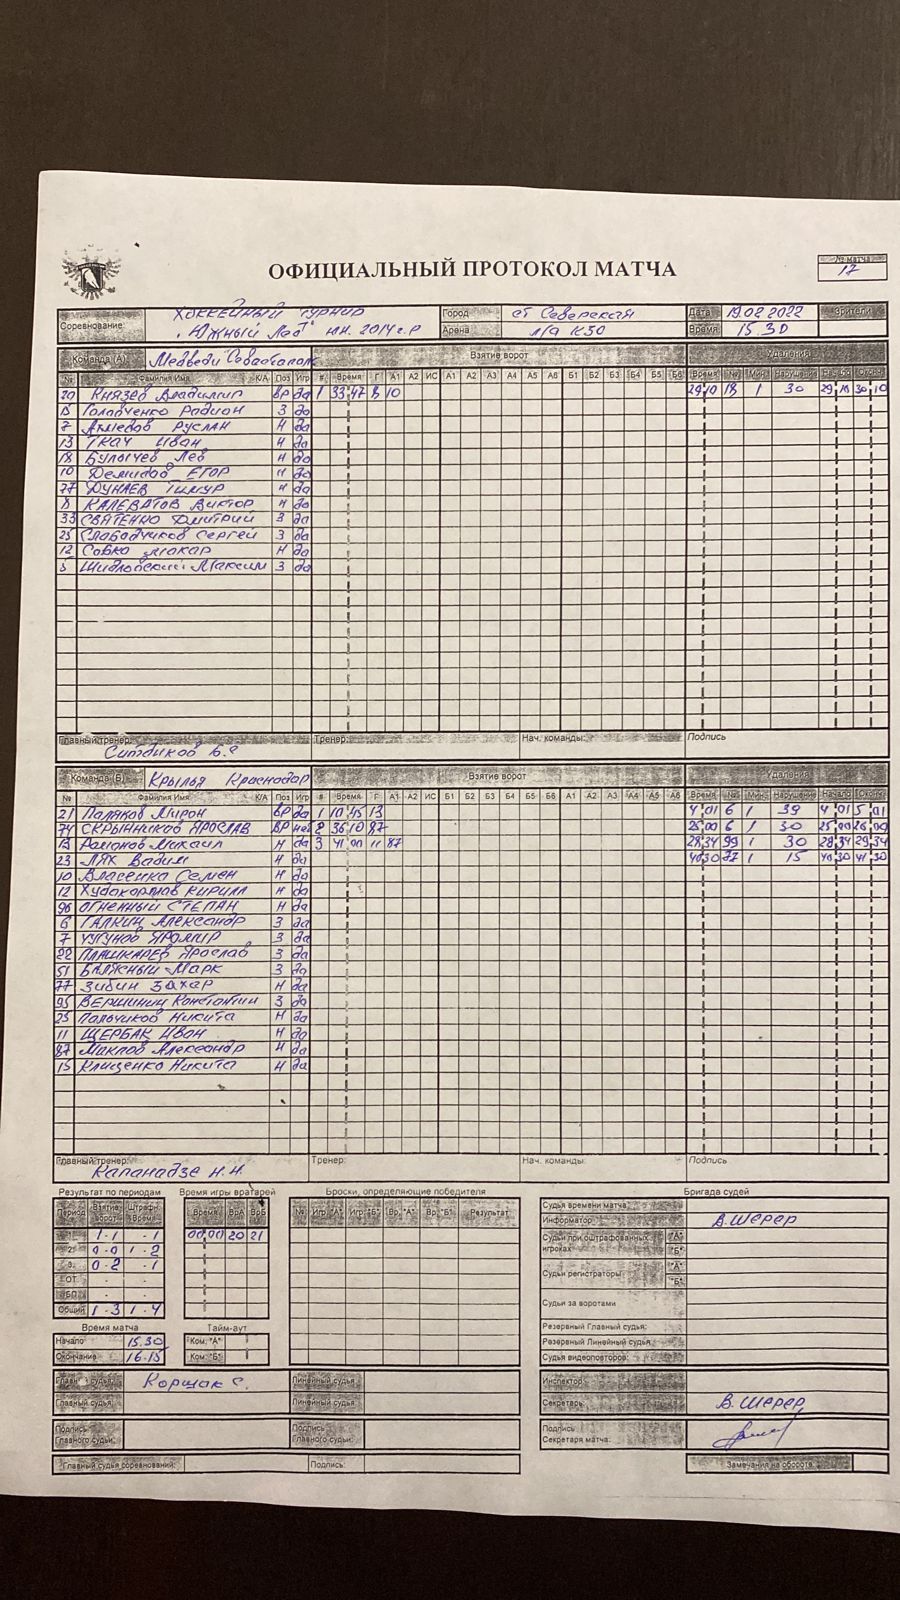 ОФИЦИАЛЬНЫЙ ПРОТОКОЛ МАТЧА
№ матча
17
Соревнование: Хоккейный турнир "Южный Лёд" юн. 2014 г.р
Город ст Северская
Дата 19 02 2022
Зрители
Арена л/а К50
Время 15 30
Команда (А) Медведи Севастополь Взятие ворот Удаления
№ Фамилия Имя К/А Поз Игр # Время Г А1 А2 ИС А1 А2 А3 А4 А5 А6 Б1 Б2 Б3 Б4 Б5 Б6 Время № Мин Нарушение Начало Оконч.
20 Князев Владимир вр да 1 33 47 8 10 29 10 18 1 30 29 10 30 10
Голабченко Радион З да
7 Ахмедов Руслан Н да
13 Ткач Иван Н да
18 Булычев Лев Н да
10 Демидов Егор Н да
77 Дунаев Тимур Н да
8 Калеватов Виктор Н да
33 Святенко Дмитрий З да
25 Слабодчиков Сергей З да
12 Собко Макар Н да
5 Шидловский Максим З да
Главный тренер: Ситдиков Тренер: Нач. команды: Подпись
Команда (Б) Крылья Краснодар Взятие ворот Удаления
№ Фамилия Имя К/А Поз Игр # Время Г А1 А2 Б1 Б2 Б3 Б4 Б5 Б6 А1 А2 А3 А4 А5 А6 Время № Мин Нарушение Начало Оконч.
21 Поляков Мирон вр да 1 10 45 13 4 01 6 1 39 4 01 5 01
74 Скрынников Ярослав вр нет 2 36 10 87 25 00 6 1 30 25 00 26 00
13 Романов Михаил Н да 3 41 00 11 87 28 34 99 1 30 28 34 29 34
23 Лях Вадим Н да 40 30 77 1 15 40 30 41 30
10 Власенка Семен Н да
12 Худокормов Кирилл Н да
96 Огненный Степан Н да
6 Галкин Александр З да
7 Чугунов Яромир З да
22 Плашкарев Ярослав З да
51 Балясный Марк З да
77 Зибин Захар Н да
95 Вершинин Константин З да
25 Пальчиков Никита Н да
11 Щербак Иван Н да
87 Маклов Александр Н да
15 Клищенко Никита Н да
Главный тренер: Капанадзе Н.Н. Тренер: Нач. команды: Подпись
Результат по периодам
Период Взятие ворот Штрафн. время
1 1 - 1 - 1
2 0 - 0 1 - 2
3 0 - 2 - 1
ОТ - -
Общий 1 - 3 1 - 4
Время матча
Начало 15.30
Окончание 16.15
Время игры вратарей
Время ВрА ВрБ
00 00 20 21
Тайм-аут
Ком. "А"
Ком. "Б"
Броски, определяющие победителя
№ Игр. "А" Игр. "Б" Вр. "А" Вр. "Б" Результат
Бригада судей
Судья времени матча
Информатор В. Шерер
Судьи при оштрафованных игроках "А" "Б"
Судьи регистраторы "А" "Б"
Судьи за воротами
Резервный Главный судья:
Резервный Линейный судья:
Судья видеоповторов:
Главный судья Корщак С. Линейный судья
Главный судья Линейный судья
Инспектор
Секретарь В. Шерер
Подпись Главного судьи: Подпись Главного судьи:
Подпись Секретаря матча:
Главный судья соревнований: Подпись:
Замечания на обороте